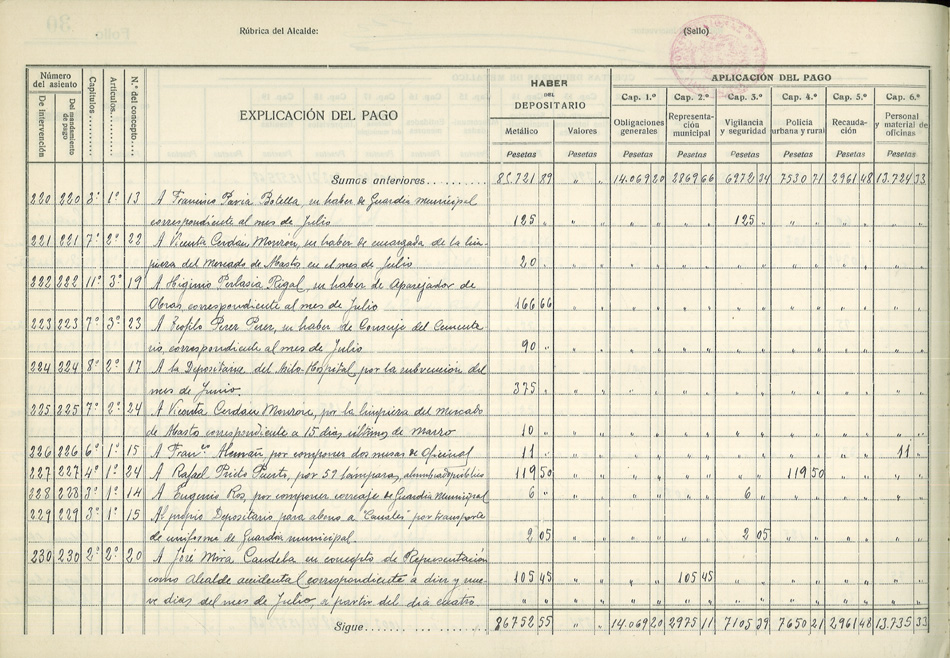 Rúbrica del Alcalde: (Sello)
Número del asiento
De intervención
Del mandamiento de pago
Capítulos
Artículos
N.º del concepto
EXPLICACIÓN DEL PAGO
HABER DEL DEPOSITARIO
Metálico Valores
Pesetas Pesetas
APLICACIÓN DEL PAGO
Cap. 1.º Cap. 2.º Cap. 3.º Cap. 4.º Cap. 5.º Cap. 6.º
Obligaciones generales
Representación municipal
Vigilancia y seguridad
Policía urbana y rural
Recaudación
Personal y material de oficinas
Pesetas Pesetas Pesetas Pesetas Pesetas Pesetas
Sumas anteriores 85.721 89 " " 14.069 20 2869 66 6972 34 7530 71 2961 48 13.724 33
220 220 3º 1º 13 A Francisco Paria Botella, su haber de Guardia municipal
correspondiente al mes de Julio 125 " 125 "
221 221 7º 2º 22 A Vicenta Cerdán Monrón, su haber de encargada de la lim-
pieza del Mercado de Abastos en el mes de Julio 20 "
222 222 11º 3º 19 A Higinio Perlasia Rigal, su haber de Aparejador de
Obras, correspondiente al mes de Julio 166 66
223 223 7º 3º 23 A Teofilo Perez Perez, su haber de Conserje del Cementerio
correspondiente al mes de Julio 90 "
224 224 8º 2º 17 A la Depositaria del Asilo-Hospital, por la subvención del
mes de Junio 375 "
225 225 7º 2º 24 A Vicenta Cerdán Monrón, por la limpieza del Mercado
de Abastos correspondiente a 15 días últimos de Marzo 10 "
226 226 6º 1º 15 A Franco Alemañ por componer dos mesas de Oficinas 11 " 11 "
227 227 4º 1º 24 A Rafael Prieto Puerto, por 59 lámparas, alumbrado público 119 50 119 50
228 228 3º 1º 14 A Eugenio Ros, por componer correaje de Guardia Municipal 6 " 6 "
229 229 3º 1º 15 Al propio Depositario para abono a "Canales" por transporte
de uniforme de Guardia municipal. 2 05 2 05
230 230 2º 2º 20 A José Mira Candela en concepto de Representación
como Alcalde accidental correspondiente a diez y nue-
ve días del mes de Julio, a partir del día cuatro. 105 45 105 45
Sigue 86752 55 " " 14.069 20 2975 11 7105 39 7650 21 2961 48 13.735 33